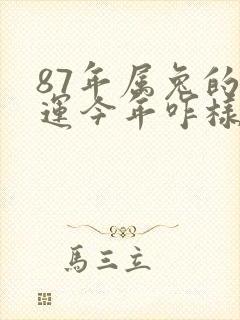 87年属兔的
运今年咋样
馬三立